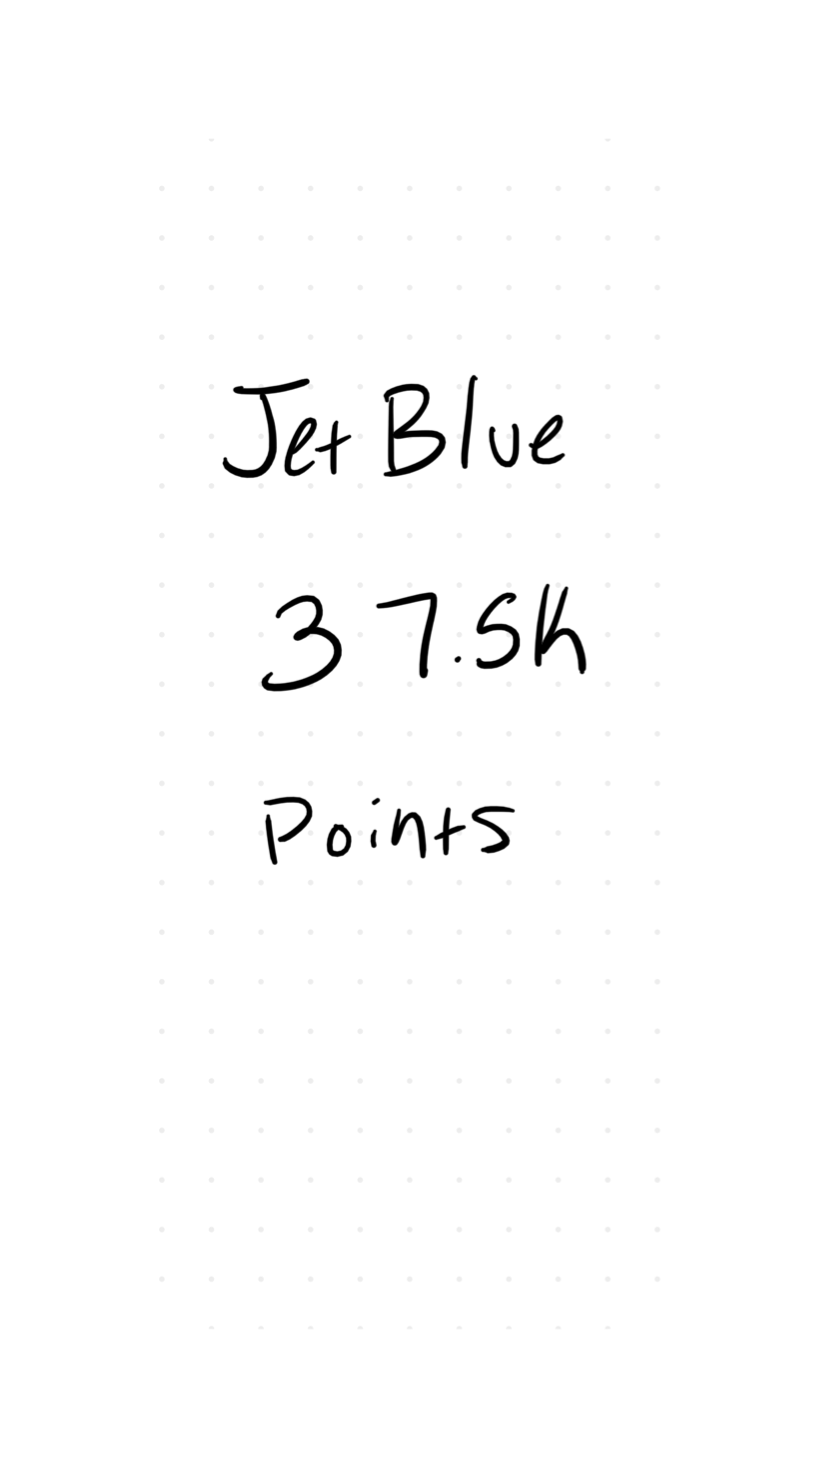 Jet Blue
37.5k
Points